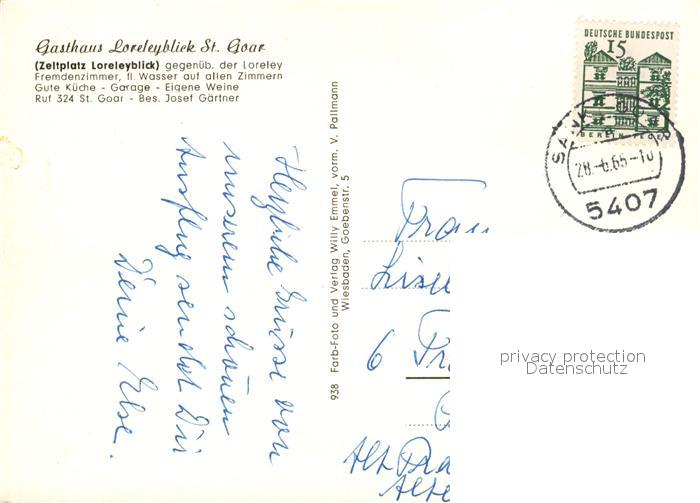 Gasthaus Loreleyblick St. Goar
(Zeltplatz Loreleyblick) gegenüb. der Loreley
Fremdenzimmer, fl. Wasser auf allen Zimmern
Gute Küche - Garage - Eigene Weine
Ruf 324 St. Goar - Bes. Josef Gärtner
Herzliche Grüsse von
unserem schönen
Ausflug sendet Dir
Deine Else.
938 Farb-Foto und Verlag Willy Emmel, vorm. V. Pallmann
Wiesbaden, Goebenstr. 5
DEUTSCHE BUNDESPOST
15
BERLIN-TEGEL
28.-6.65-10
5407
Frau
6
privacy protection
Datenschutz